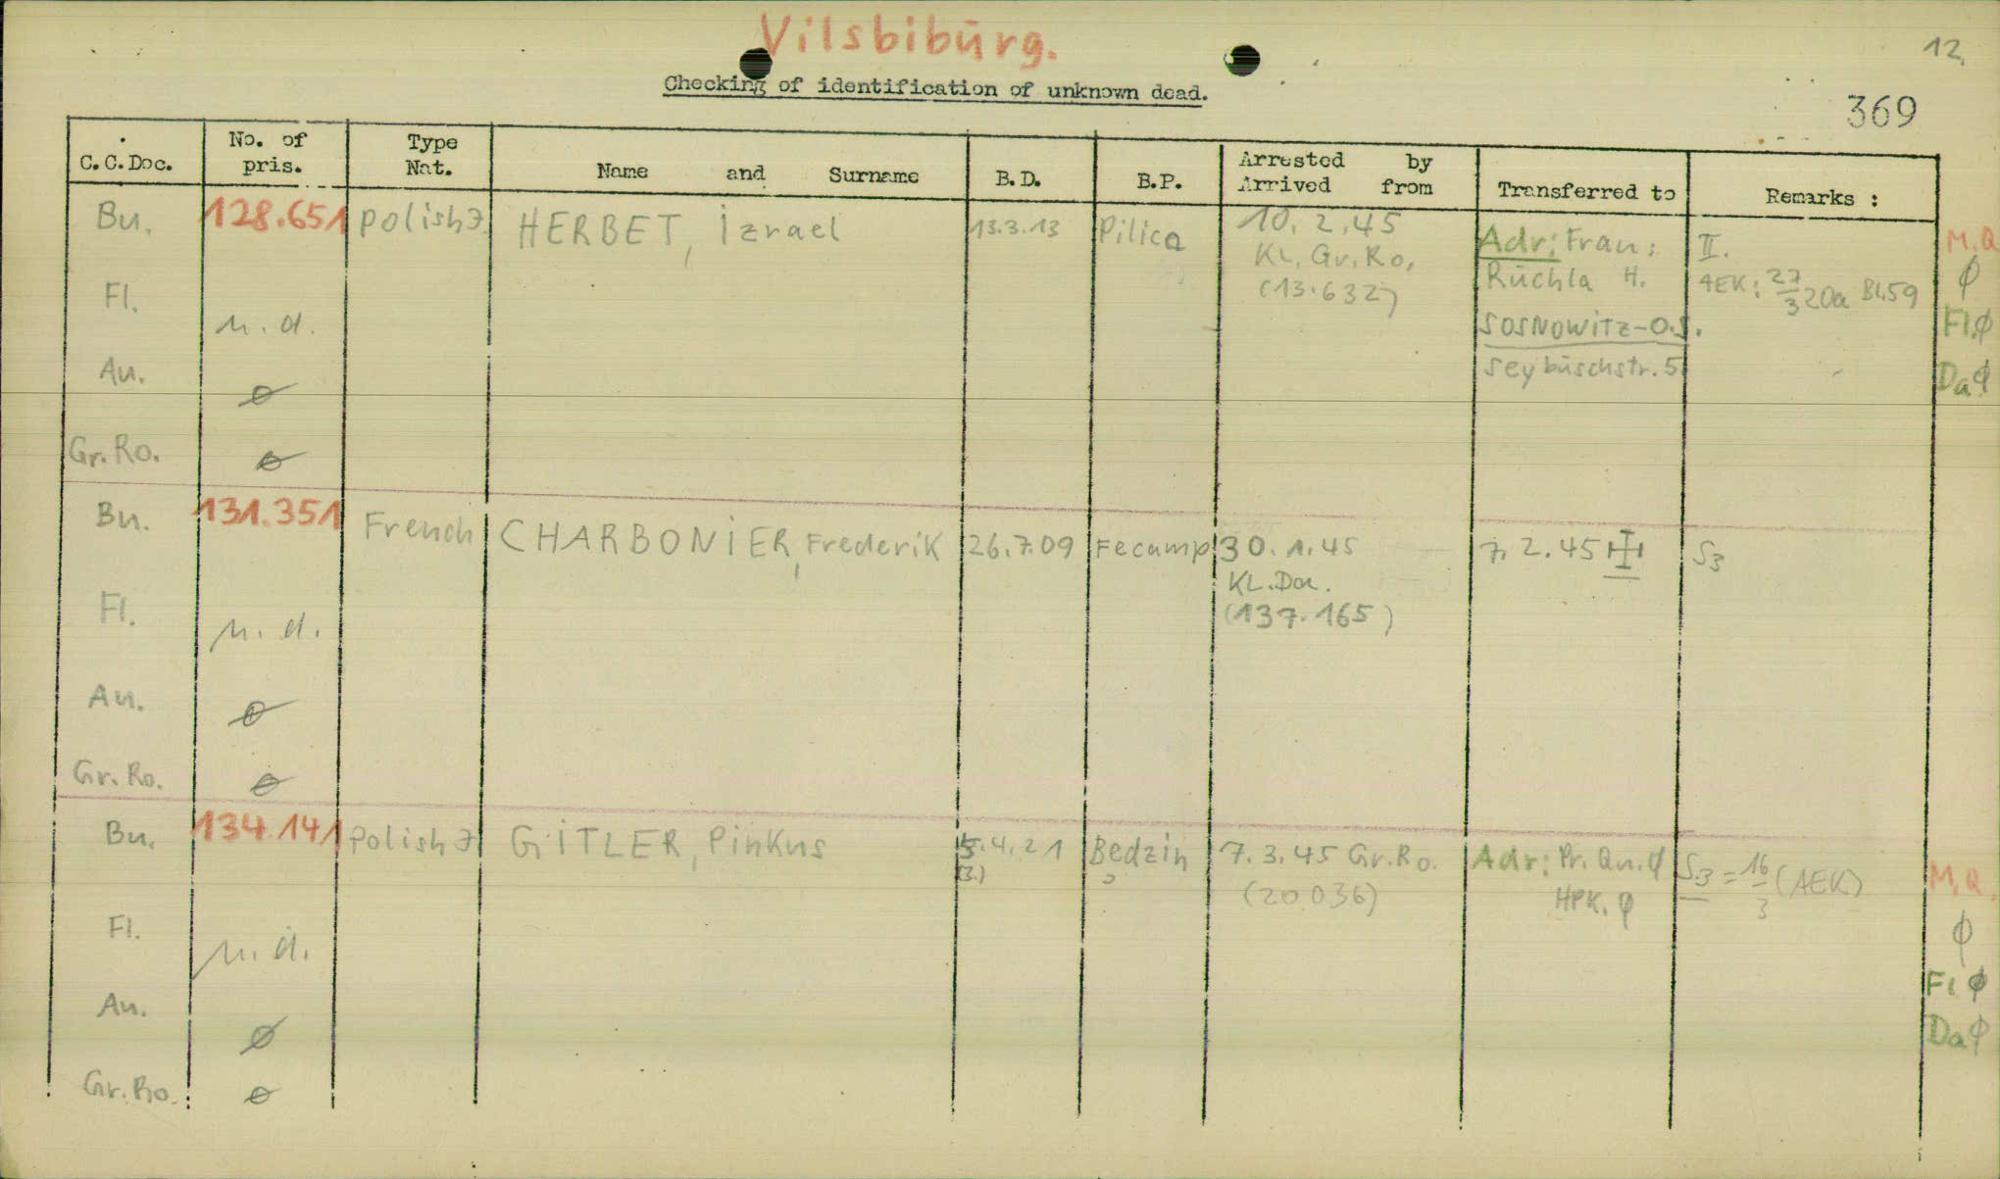 Vilsbibürg.
12.
Checking of identification of unknown dead.
369
C.C.Doc. No. of pris. Type Nat. Name and Surname B.D. B.P. Arrested by Arrived from Transferred to Remarks :
Bu. 128.651 polish J HERBET, Izrael 13.3.13 Pilica 10.2.45 Adr: Frau: II. M.Q
KL. Gr.Ro. Rüchla H. AEK: 27/3 20a Bl.59 Ø
Fl. n.d. (13.632) SOSNOWITZ-O.S. Fl.Ø
Au. Ø Seybüschstr. 5 Da Ø
Gr.Ro. Ø
Bu. 131.351 French CHARBONIER, Frederik 26.7.09 Fecamp 30.1.45 7.2.45 S3
KL.Da.
Fl. n.d. (137.165)
Au. Ø
Gr.Ro. Ø
Bu. 134.141 Polish J GITLER, Pinkus 5.4.21 Bedzin 7.3.45 Gr.Ro. Adr: Pr. Qu. Ø S.3 = 16/3 (AEK) M.Q.
(3.) (20036) HPK. Ø Ø
Fl. n.d. Fl Ø
Au. Ø Da Ø
Gr.Ro. Ø